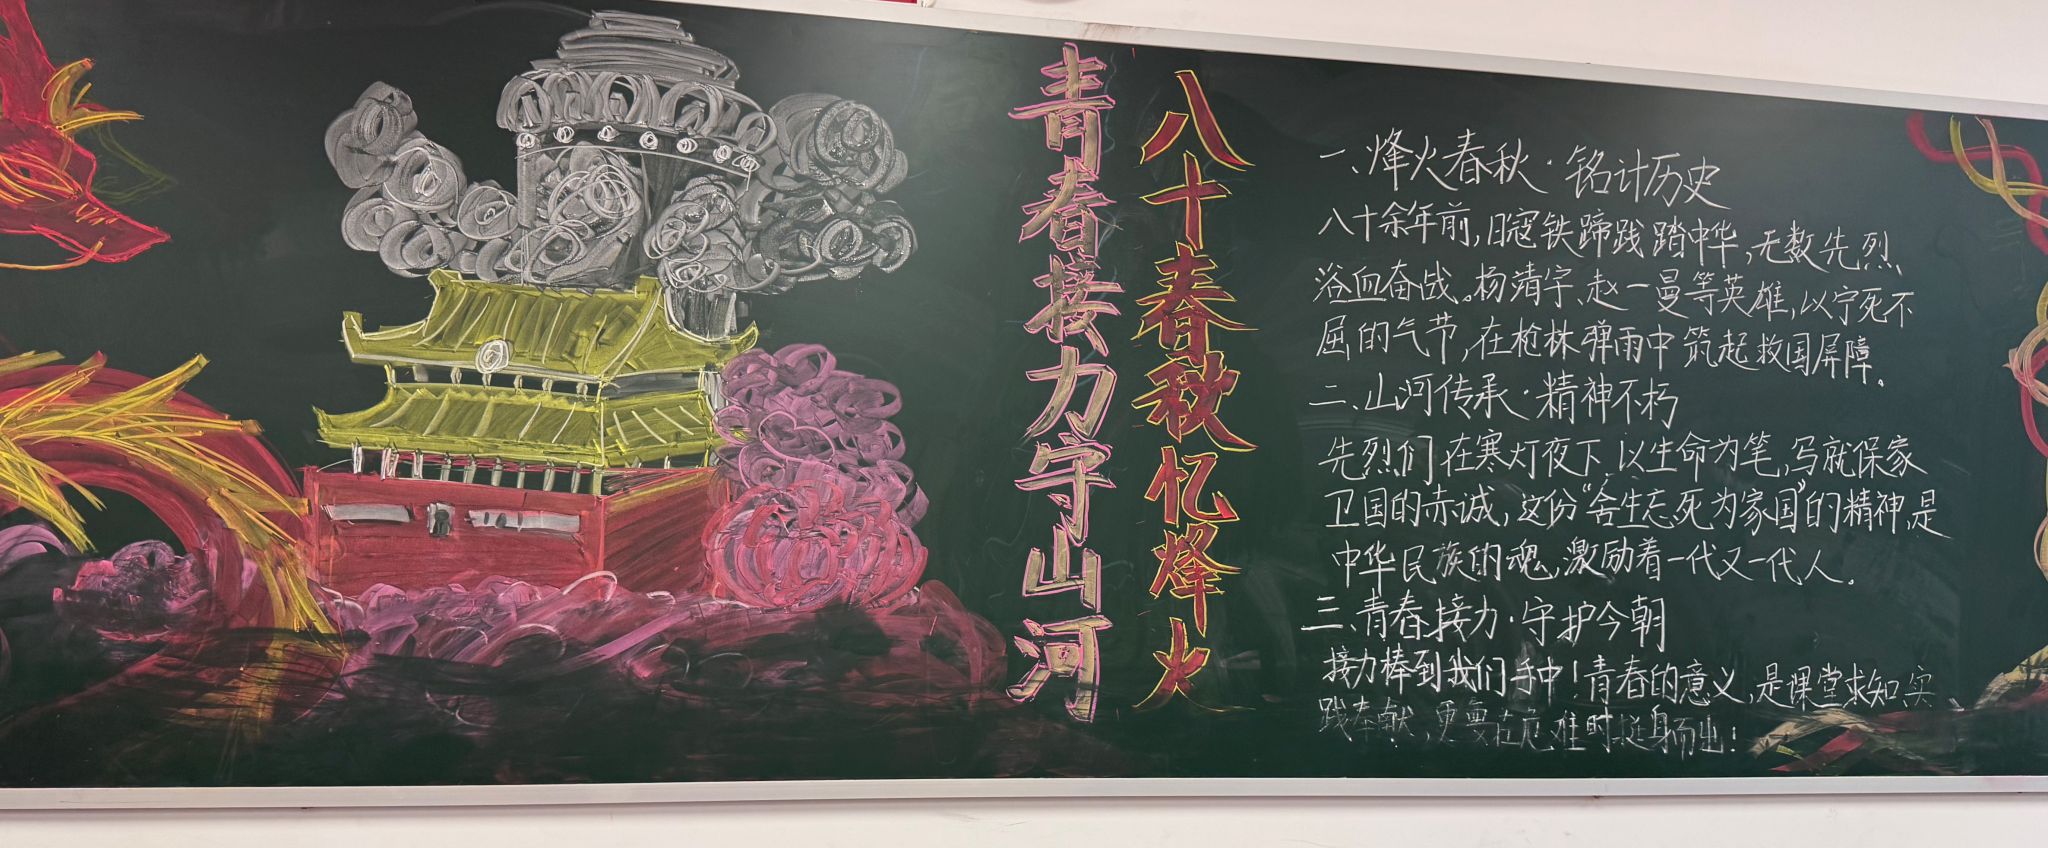 八十春秋忆烽火
青春接力守山河
一、烽火春秋·铭计历史
八十余年前,日寇铁蹄践踏中华,无数先烈
浴血奋战。杨靖宇、赵一曼等英雄,以宁死不
屈的气节,在枪林弹雨中筑起救国屏障。
二、山河传承·精神不朽
先烈们在寒灯夜下,以生命为笔,写就保家
卫国的赤诚,这份“舍生忘死为家国”的精神,是
中华民族的魂,激励着一代又一代人。
三、青春接力·守护今朝
接力棒到我们手中!青春的意义,是课堂求知,实
践奉献,更要在危难时挺身而出!